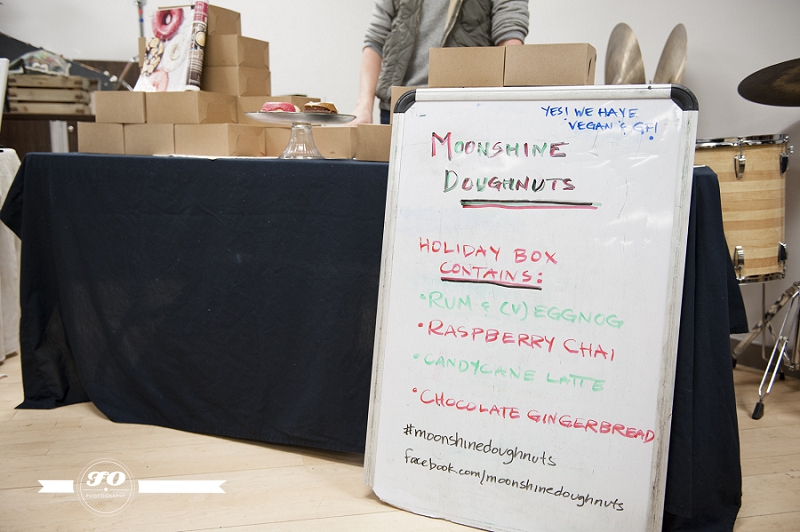 YES! WE HAVE
VEGAN & GF!
MOONSHINE
DOUGHNUTS
HOLIDAY BOX
CONTAINS:
• RUM & (V) EGGNOG
• RASPBERRY CHAI
• CANDYCANE LATTE
• CHOCOLATE GINGERBREAD
#moonshinedoughnuts
facebook.com/moonshinedoughnuts
FO
PHOTOGRAPHY